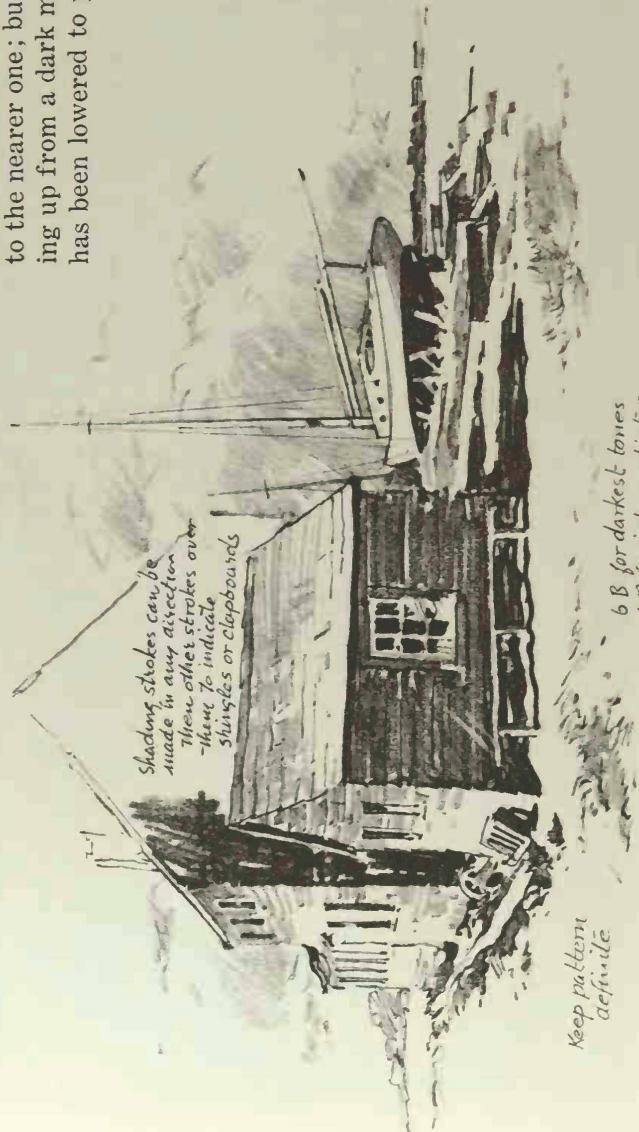 to the nearer one; bu
ing up from a dark m
has been lowered to
Shading strokes can be
made in any direction
Then other strokes over
them to indicate
shingles or clapboards
Keep pattern
definite
6 B for darkest tones